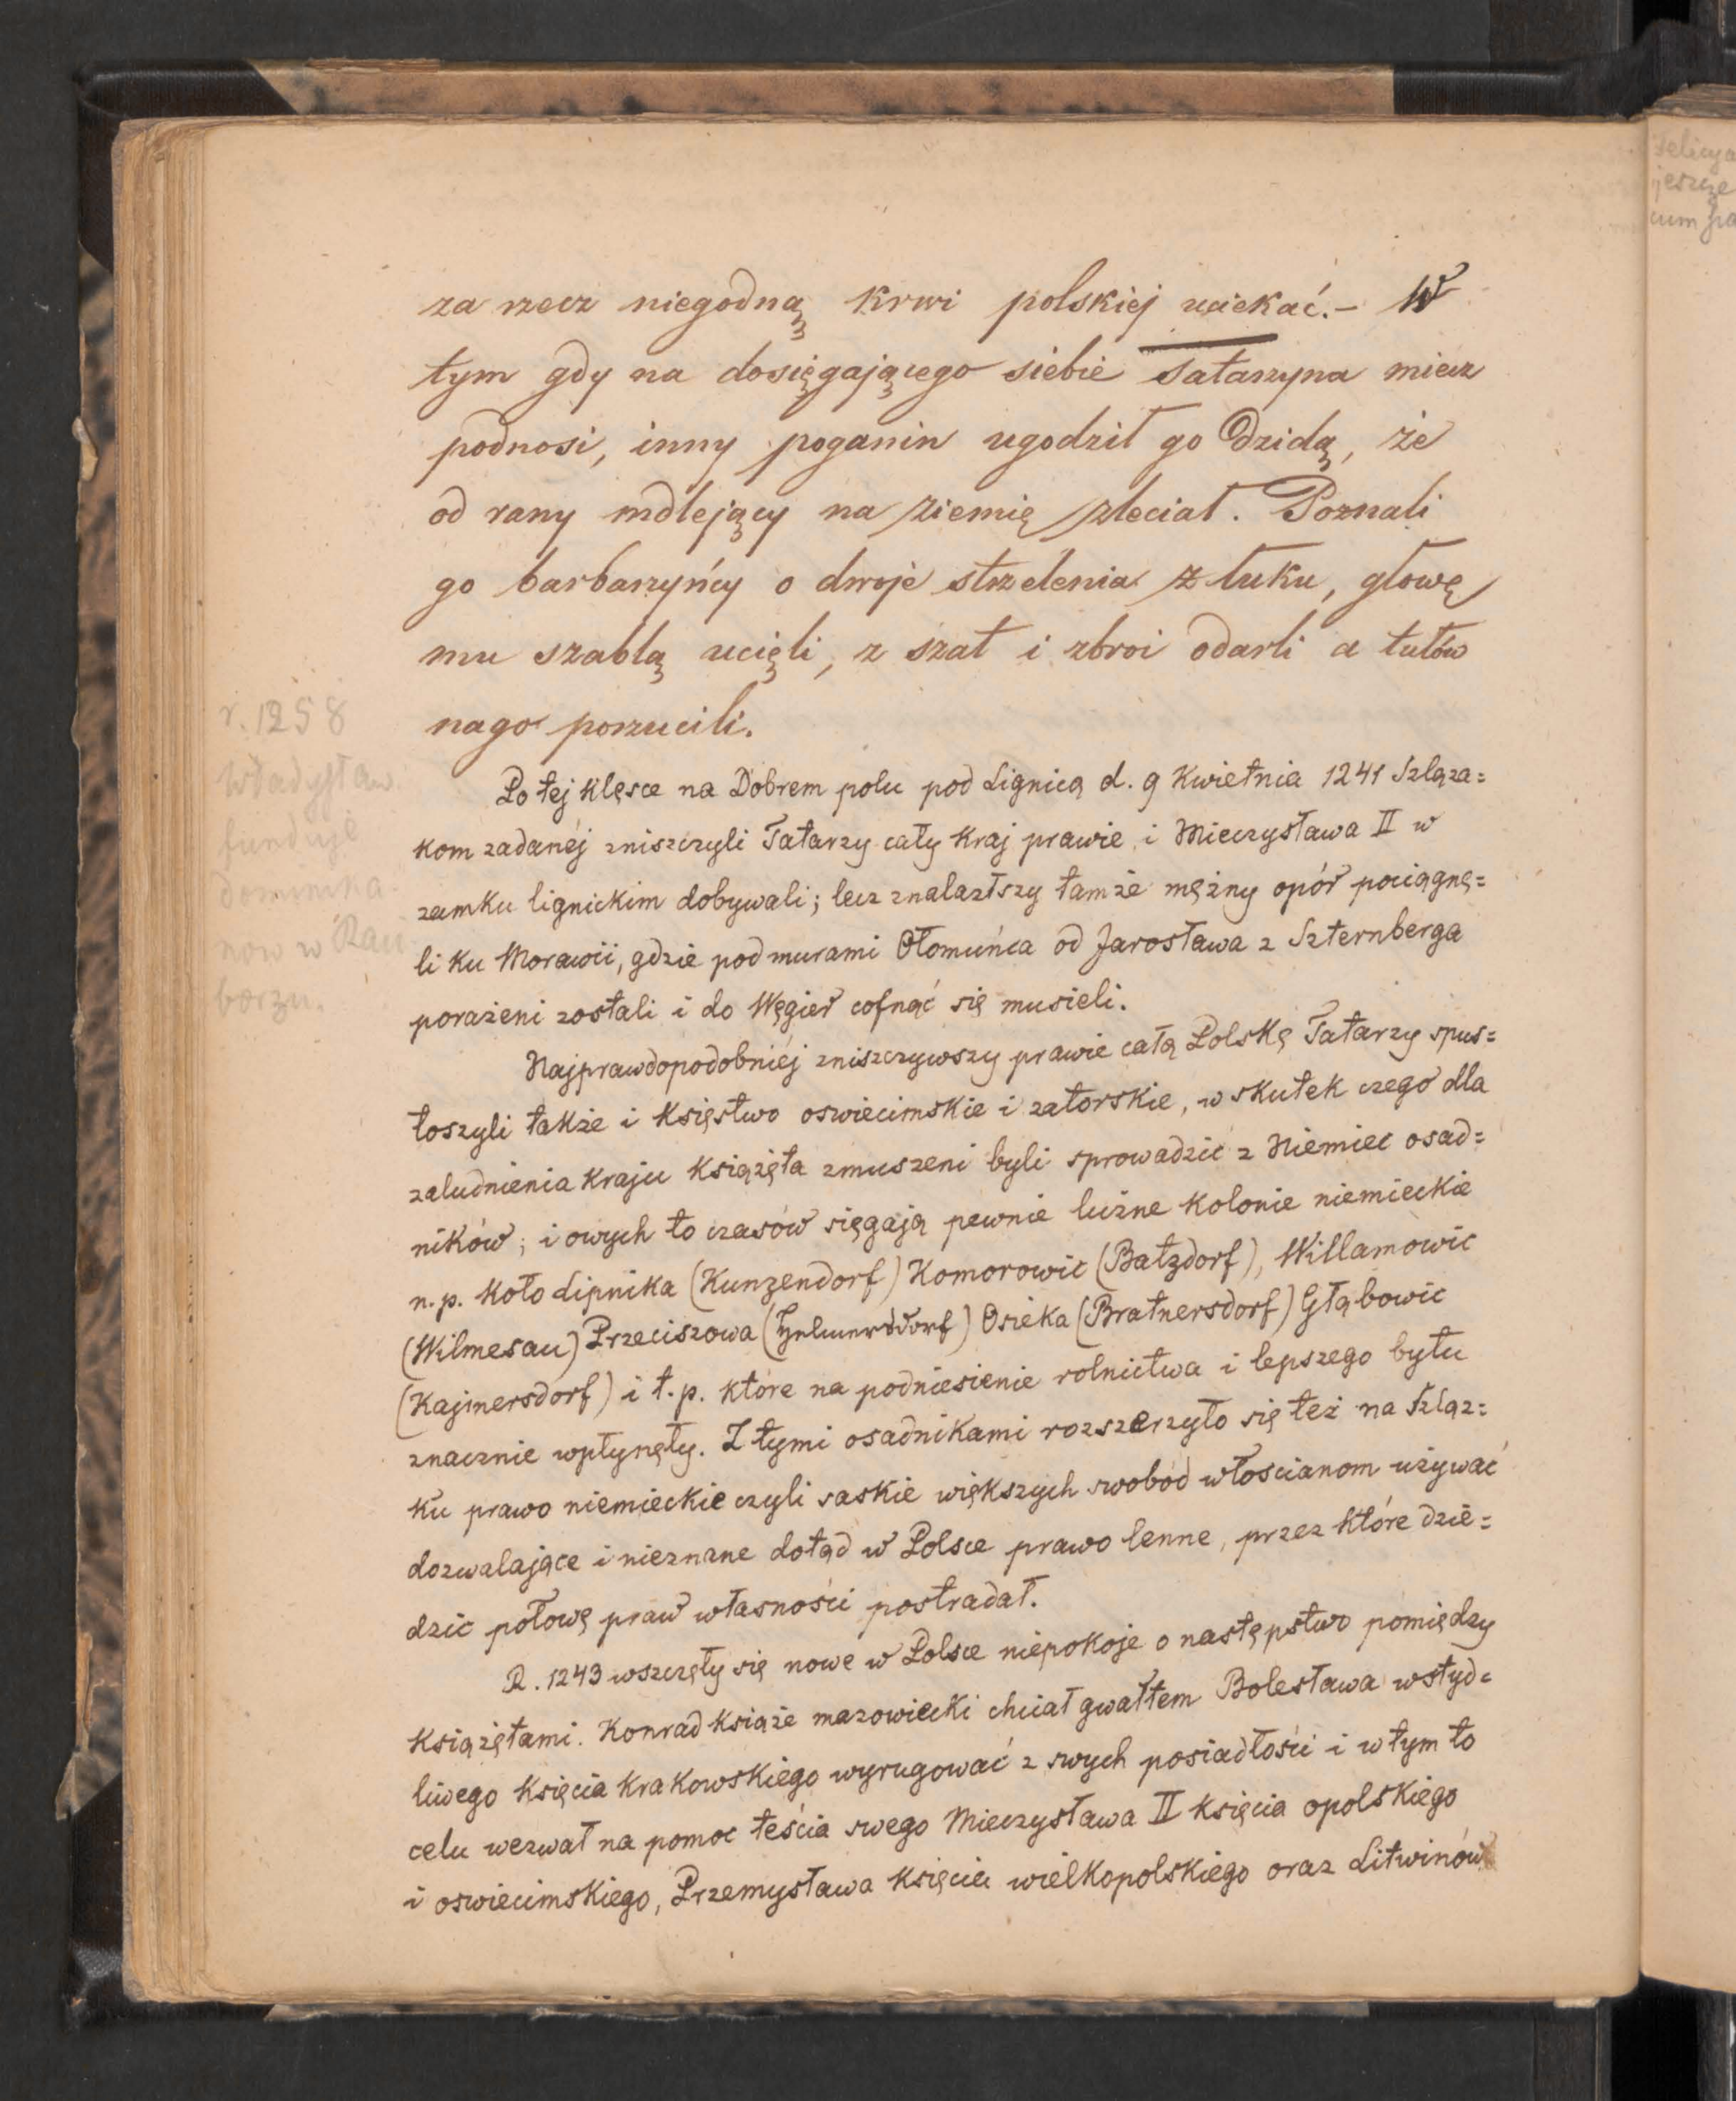 za rzecz niegodną krwi polskiej uciekać.– W
tym gdy na dosięgającego siebie Tatarzyna miecz
podnosi, inny poganin ugodził go Dzidą, że
od rany mdlejący na ziemię zleciał. Poznali
go barbarzyńcy o dwoje strzelenia z łuku, głowę
mu szablą ucięli, z szat i zbroi odarli a tułów
nago porzucili.
r. 1258
Władysław
funduje
domini­ka-
nów w Raci
borzu.
Po tej klęsce na Dobrem polu pod Lignicą d. 9 Kwietnia 1241 Szląza=
kom zadanéj zniszczyli Tatarzy cały kraj prawie i Mieczysława II w
zamku lignickim dobywali; lecz znalazłszy tamże mężny opór pociągnę=
li ku Morawii, gdzie pod murami Ołomuńca od Jarosława z Szternberga
porażeni zostali i do Węgier cofnąć się musieli.
Najprawdopodobniéj zniszczywszy prawie całą Polskę Tatarzy spus=
toszyli także i księstwo oswiecimskie i zatorskie, w skutek czego dla
zaludnienia kraju książęta zmuszeni byli sprowadzić z Niemiec osad=
ników; i owych to czasów sięgają pewnie liczne kolonie niemieckie
n.p. koło Lipnika (Kunzendorf) Komorowic (Batzdorf), Willamowic
(Wilmesau) Przeciszowa Osieka (Bratnersdorf) Głąbowic
(Kajmersdorf) i t.p. które na podniesienie rolnictwa i lepszego bytu
znacznie wpłynęły. Z tymi osadnikami rozszerzyło się też na Szląz=
ku prawo niemieckie czyli saskie większych swobód włoscianom używać
dozwalające i nieznane dotąd w Polsce prawo lenne, przez które dzie=
dzic połowę praw własności postradał.
R. 1243 wszczęły się nowe w Polsce niepokoje o następstwo pomiędzy
książętami. Konrad książe mazowiecki chciał gwałtem Bolesława wstyd=
liwego księcia krakowskiego wyrugować z swych posiadłości i w tym to
celu wezwał na pomoc teścia swego Mieczysława II księcia opolskiego
i oswiecimskiego, Przemysława księcia wielkopolskiego oraz Litwinów
jeszcze